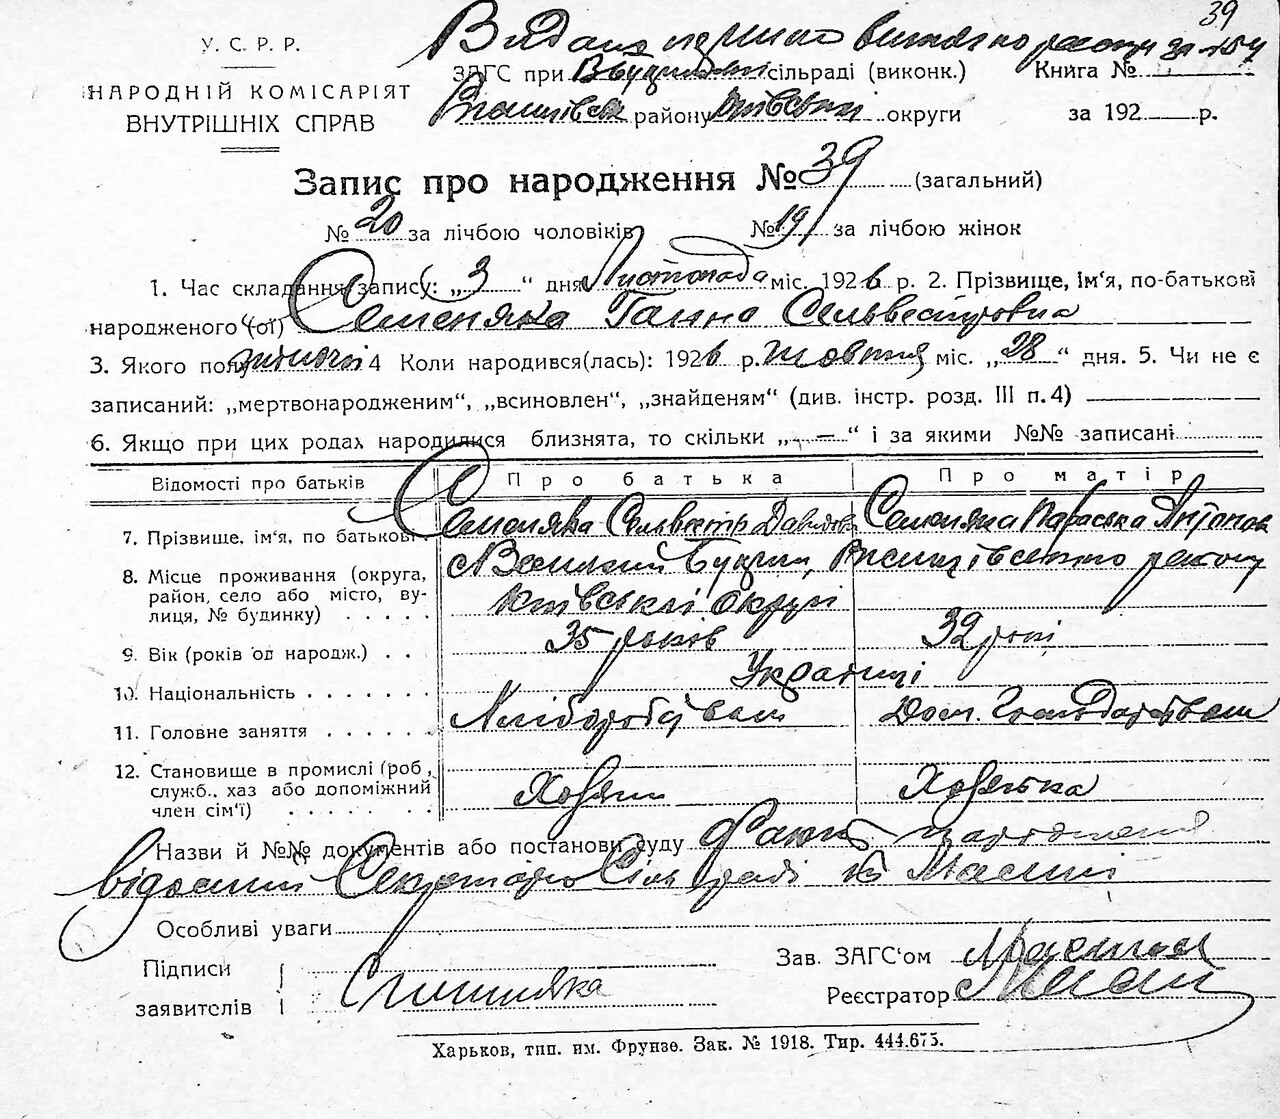 39
У. С. Р. Р.
НАРОДНІЙ КОМІСАРІЯТ
ВНУТРІШНІХ СПРАВ
Видано за
ЗАГС при сільраді (виконк.) Книга №
району Київської округи за 192 р.
Запис про народження № 39 (загальний)
№ 20 за лічбою чоловіків № 19 за лічбою жінок
1. Час складання запису: „3“ дня Листопада міс. 1926 р. 2. Прізвище, ім'я, по-батькові
народженого (ої) Семеняка Ганна Сельвестровна
3. Якого полу жіночі 4 Коли народився(лась): 1926 р. жовтня міс. „28“ дня. 5. Чи не є
записаний: „мертвонародженим“, „всиновлен“, „знайденям“ (див. інстр. розд. III п. 4)
6. Якщо при цих родах народилися близнята, то скільки „—“ і за якими №№ записані
Відомості про батьків Про батька Про матір
7. Прізвище, ім'я, по батькові Семеняка Сельвестр Давидов Семеняка Параська Антонов
8. Місце проживання (округа, район, село або місто, вулиця, № будинку) Великий Букрин, району
Київської округи
9. Вік (років од народж.) 35 років 32 роки
10. Національність Українці
11. Головне заняття Хліборобством Дом. Господарством
12. Становище в промислі (роб, служб., хаз або допоміжний член сім'ї) Хозяин Хозяйка
Назви й №№ документів або постанови суду Факт народження
відомий Секретарю Сільради
Особливі уваги
Підписи
заявителів Семеняка
Зав. ЗАГС'ом
Реєстратор
Харьков, тип. им. Фрунзе. Зак. № 1918. Тир. 444.675.